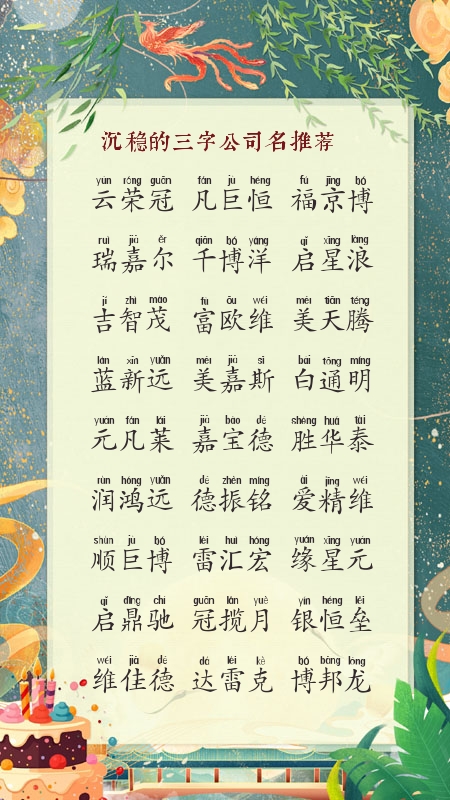 沉稳的三字公司名推荐
yún róng guān fán jù héng fú jīng bó
云荣冠 凡巨恒 福京博
ruì jiā ěr qiān bó yáng qǐ xīng làng
瑞嘉尔 千博洋 启星浪
jí zhì mào fù ōu wéi měi tiān téng
吉智茂 富欧维 美天腾
lán xīn yuǎn měi jiā sī bái tōng míng
蓝新远 美嘉斯 白通明
yuán fán lái jiā bǎo dé shèng huá tài
元凡莱 嘉宝德 胜华泰
rùn hóng yuǎn dé zhèn míng ài jīng wéi
润鸿远 德振铭 爱精维
shùn jù bó léi huì hóng yuán xīng yuán
顺巨博 雷汇宏 缘星元
qǐ dǐng chí guān lǎn yuè yín héng lěi
启鼎驰 冠揽月 银恒垒
wéi jiā dé dá léi kè bó bāng lóng
维佳德 达雷克 博邦龙